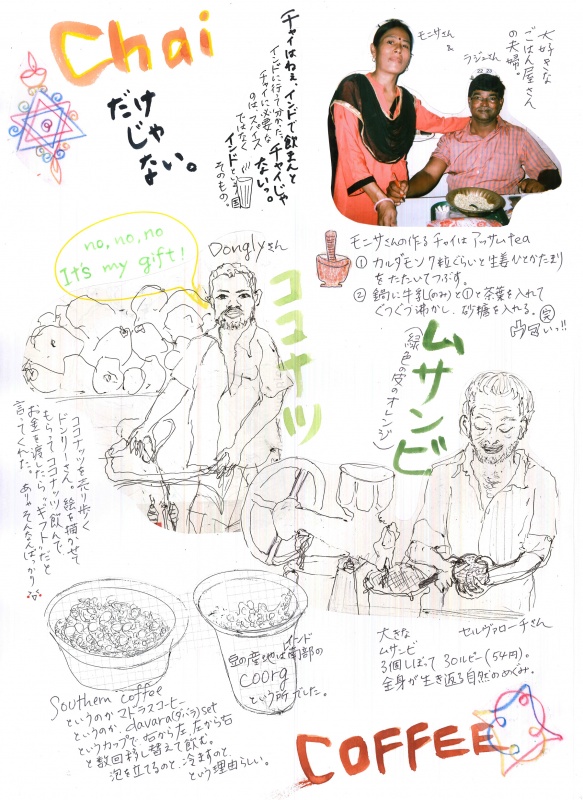 Chai
だけ
じゃ
ない。
チャイはねぇ、インドで飲まんと
インドに行って分かった、チャイじゃ
チャイに必要な
ないっ。
のは、スパイス
ではなく
インドという国
そのもの。
モニサさん
&
ラジューさん
大好きな
ごはん屋さん
の夫婦。
モニサさんの作るチャイは アッサムtea
① カルダモン7粒ぐらいと生姜ひとかたまり
をたたいてつぶす。
② 鍋に牛乳(のみ)と①と茶葉を入れて
ぐつぐつ沸かし、砂糖を入れる。
no, no, no
It's my gift!
Donglyさん
ココナツ
ムサンビ
(緑色の皮のオレンジ)
ココナッツを売り歩く
ドンリーさん。絵を描かせて
もらってココナッツ飲んで
お金を渡したら、"ギフト"だと
言ってくれた。
セルヴァローチさん
大きな
ムサンビ
3個しぼって30ルピー(54円)。
全身が生き返る自然のめぐみ。
豆の産地はインド南部の
coorg
という所でした。
Southern coffee
というのかマドラスコーヒー
というのか、davara(ダバラ)set
というカップで右から左、左から右
と数回移し替えて飲む。
泡を立てるのと、冷ますのと、
という理由らしい。
COFFEE